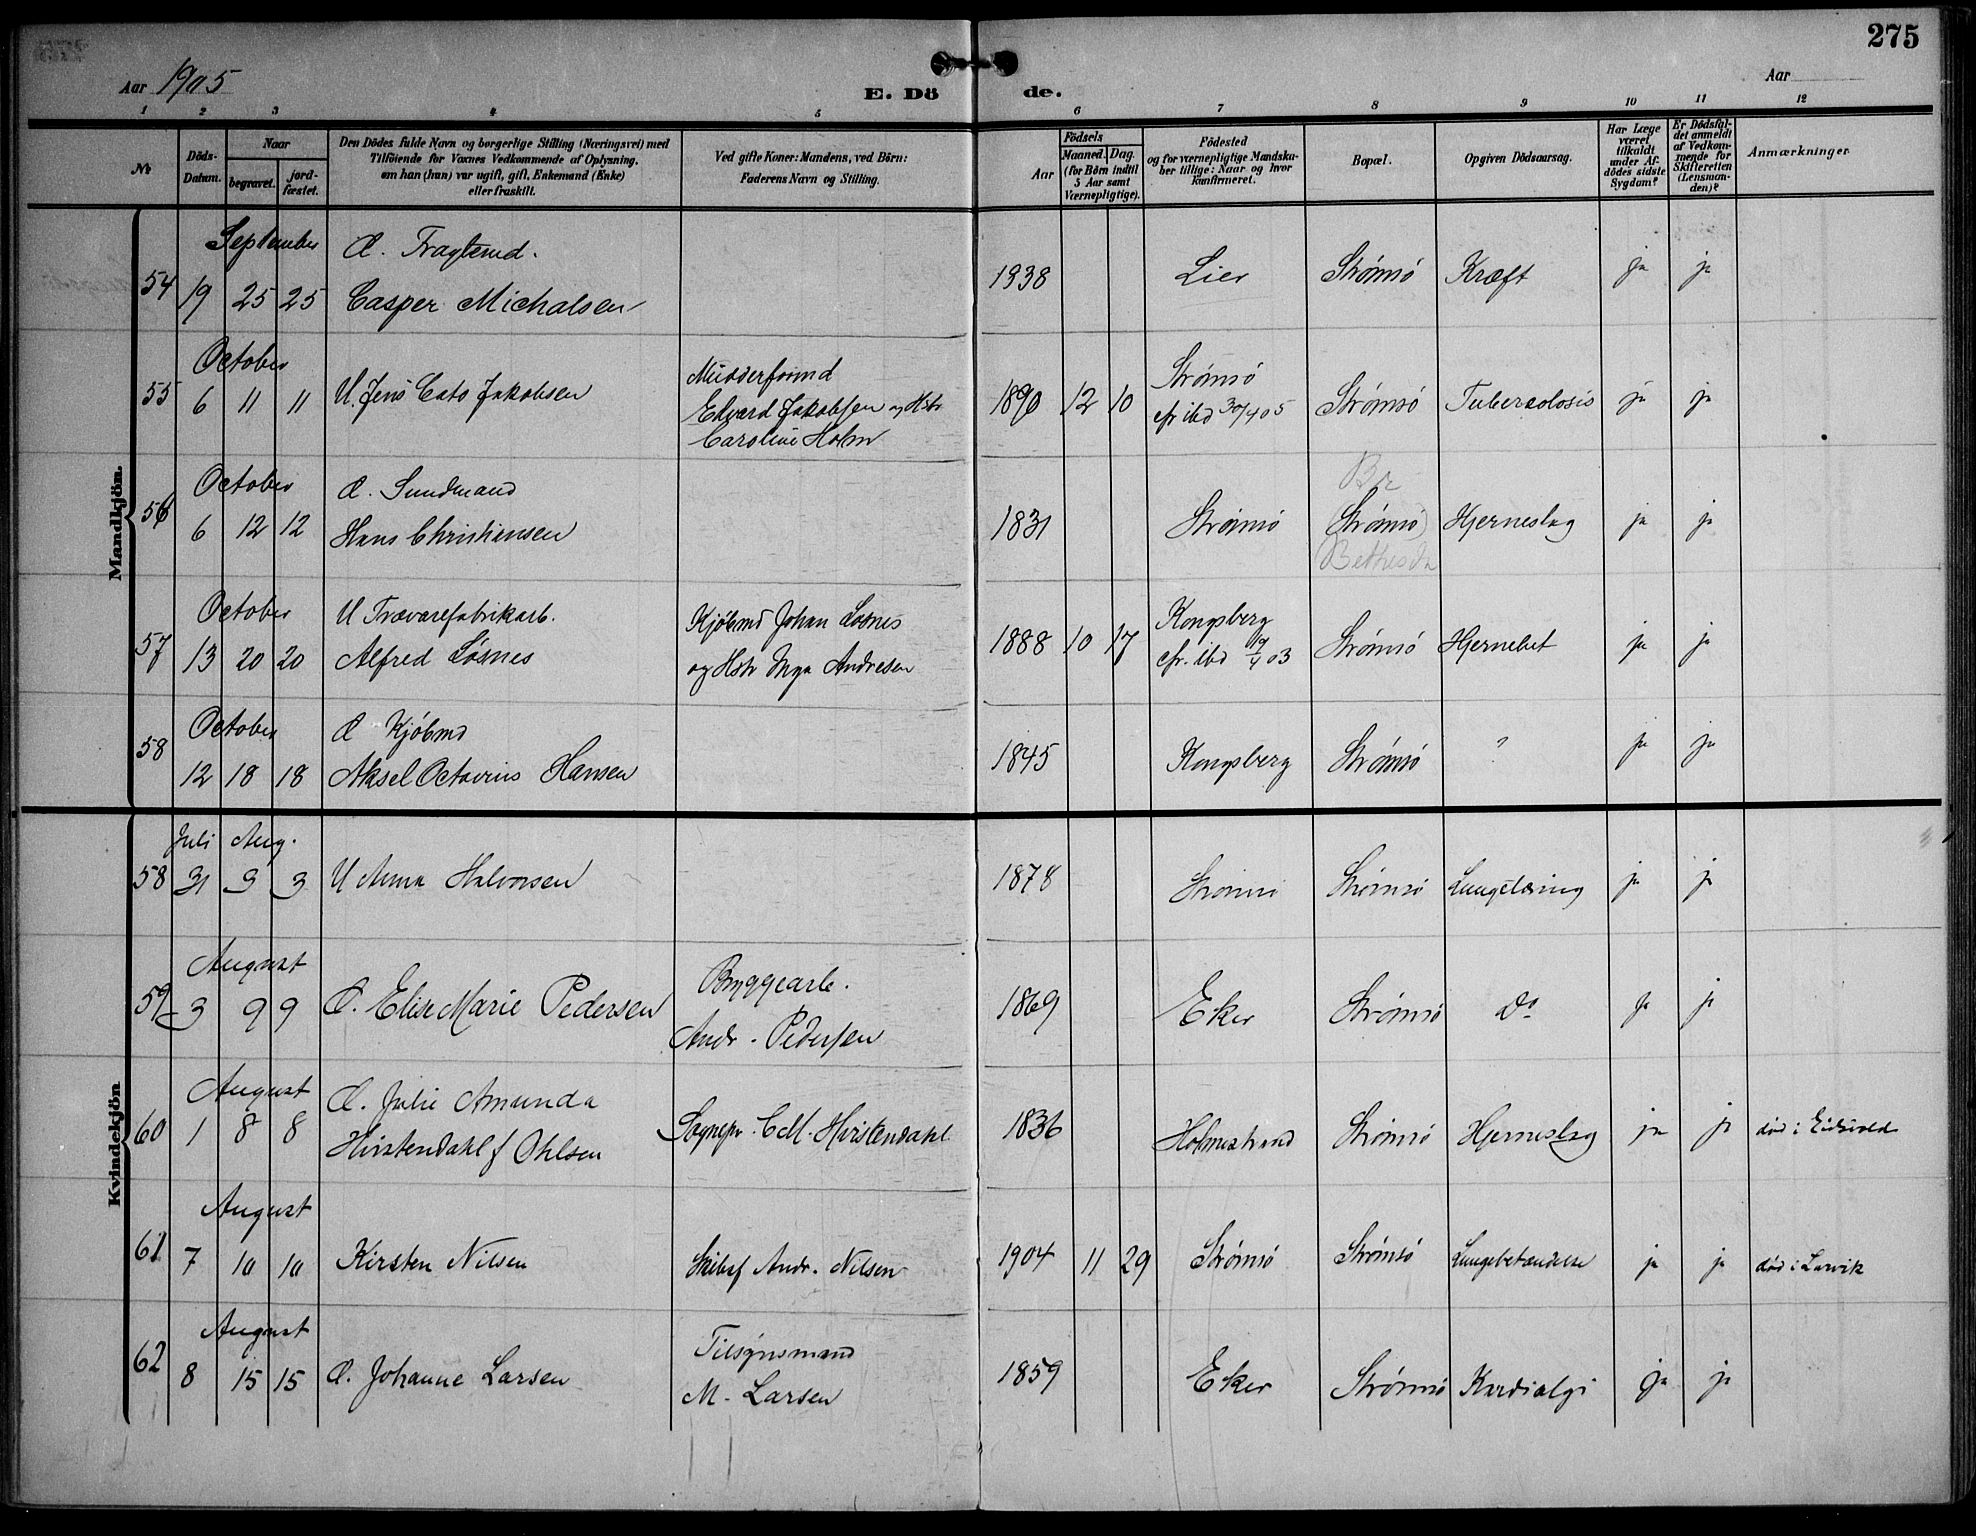 275
Aar 1905
E. Dö
de.
Aar
1 2 3 4 5 6 7 8 9 10 11 12
Nr.
Döds-Datum.
Naar
begravet.
jord-fæstet.
Den Dödes fulde Navn og borgerlige Stilling (Næringsvei) med
Tilföiende for Voxnes Vedkommende af Oplysning,
om han (hun) var ugift, gift, Enkemand (Enke)
eller fraskilt.
Ved gifte Koner: Mandens, ved Börn:
Faderens Navn og Stilling.
Födsels
Aar
Maaned. Dag.
(for Börn indtil
5 Aar samt
Værnepligtige).
Födested
og for værnepligtige Mandska-
ber tillige: Naar og hvor
konfirmeret.
Bopæl.
Opgiven Dödsaarsag.
Har Læge
været
tilkaldt
under Af-
dödes sidste
Sygdom?
Er Dödsfal-
det anmeldt
af Vedkom-
mende for
Skifteretten
(Lensman-
den)?
Anmærkninger
Mandkjön.
September
E. Fragtemd.
54 19 25 25 Casper Michalsen 1838 Lier Strömsö Kræft ja ja
October
55 6 11 11 U. Jens Cato Jakobsen
Mudderformd
Edvard Jakobsen og Hstr
Caroline Holm
1890 12 10 Strömsö
cfr ibd 30/4 05
Strömsö Tuberkolosis ja ja
October
E. Sundmand
56 6 12 12 Hans Christiansen 1831 Strömsö Strömsö Hjerneslag ja ja
Bethesda
October
U Trævarefabrikarb.
57 13 20 20 Alfred Lösnes
Kjöbmd Johan Lösnes
og Hstr Inga Andresen
1888 10 17 Kongsberg
cfr. ibd 19/4 03
Strömsö Hjernebet ja ja
October
E Kjöbmd
58 12 18 18 Aksel Octavius Hansen 1845 Kongsberg Strömsö ? ja ja
Kvindekjön
Juli Aug.
58 31 3 3 U Anna Halvorsen 1878 Strömsö Strömsö Lungetæring ja ja
August
59 3 9 9 E. Elise Marie Pedersen
Bryggearb.
Andr. Pedersen
1869 Eker Strömsö Do ja ja
August
60 1 8 8 E. Julie Amunda
Hvistendahl f Ohlsen
Sognepr. C. M. Hvistendahl
1836 Holmestrand Strömsö Hjerneslag ja ja död i Eidsvold
August
61 7 10 10 Kirsten Nilsen
Skibsf Andr. Nilsen
1904 11 29 Strömsö Strömsö Lungebetændelse ja ja död i Larvik
August
62 8 15 15 E. Johanne Larsen
Tilsynsmand
M. Larsen
1859 Eker Strömsö Kardialgi ja ja